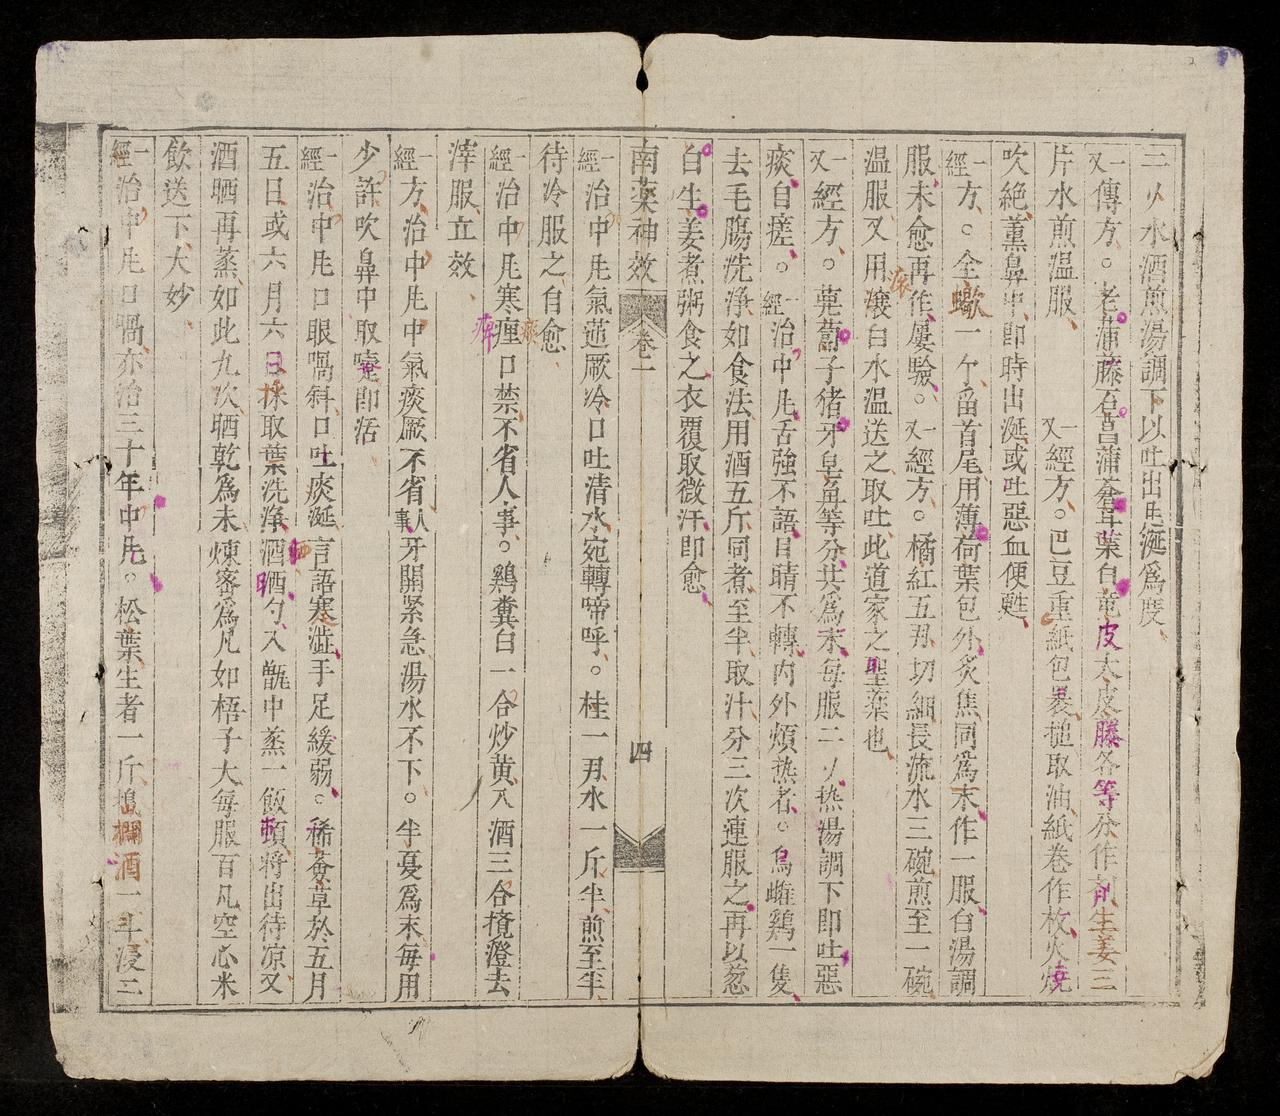 二𠆤水酒煎湯調下以吐出𠘨涎爲度
一又傳方。老蒲藤石菖蒲薈耳葉白竜皮大皮藤各等分作剤生姜三
片水煎温服　一又經方。巴豆重紙包裹搥取油紙卷作枚火燒
吹絶薰鼻中即時出涎或吐惡血便甦
一經方。全蠍一个畄首尾用薄荷葉包外炙焦同爲末作一服白湯調
服未愈再作屢驗。一又經方。橘紅五刄切細長流水三碗煎至一碗
温服又用滚白水温送之取吐此道家之聖藥也
一又經方。萆藠子猪牙皂角等分共爲末每服二𠆤热湯調下即吐惡
痰自瘥。一經治中𠘨舌強不語目睛不轉內外煩热者。烏雌鷄一隻
去毛腸洗淨如食法用酒五斤同煮至半取汁分三次連服之再以葱
白生姜煮粥食之衣覆取微汗即愈
南藥神效 卷一 四
一經治中𠘨氣𦸂厥冷口吐清水宛轉啼呼。桂一刄水一斤半煎至半
待冷服之自愈
一經治中𠘨寒痙口禁不省人事。鷄糞白一合炒黄入酒三合攪澄去
滓服立效
一經方治中𠘨中氣痰厥不省人事牙關緊急湯水不下。半夏爲末每用
少許吹鼻中取嚏即活
一經治中𠘨口眼喎斜口吐痰涎言語寒澁手足緩弱。稀薟草於五月
五日或六月六日採取葉洗淨酒洒勻入甑中蒸一飯頓將出待凉又
酒晒再蒸如此九次晒乾爲末煉蜜爲凡如梧子大每服百凡空心米
飲送下大妙
一經治中𠘨口喎亦治三十年中𠘨。松葉生者一斤搗爛酒一斗浸二